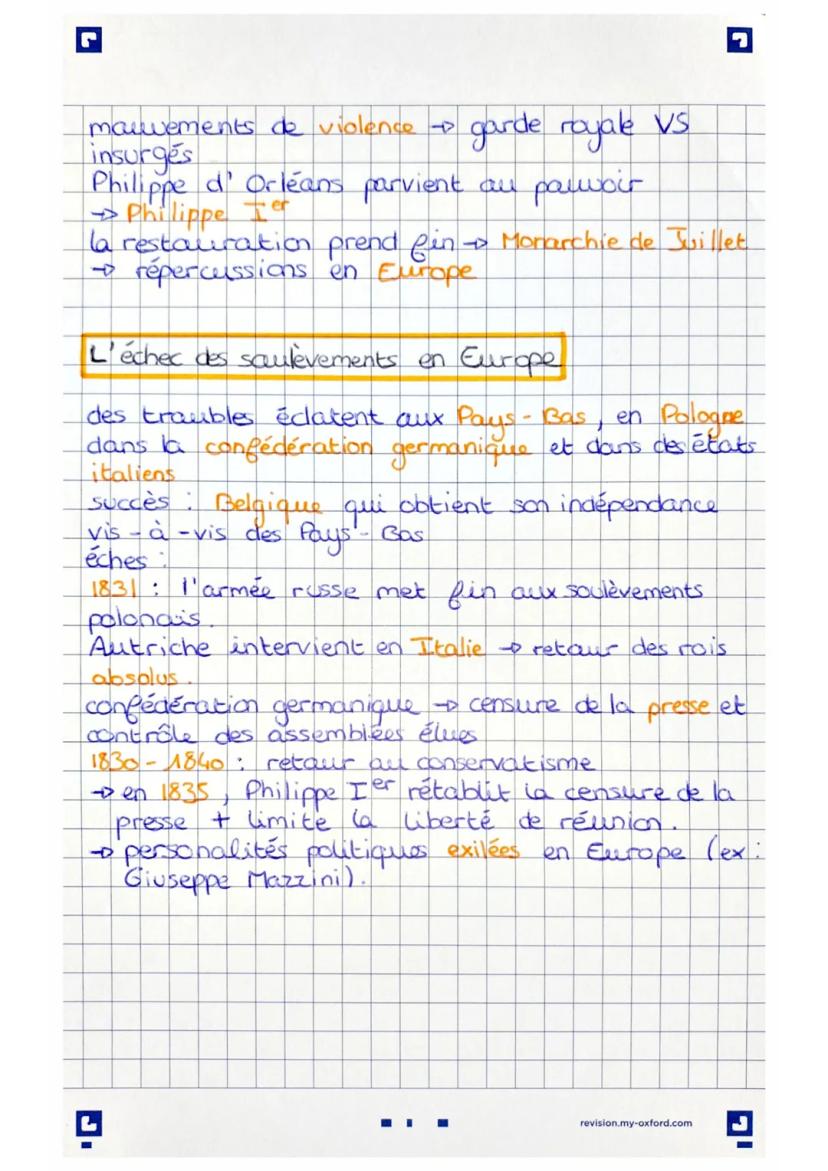 mouvements de violence → garde royale VS
insurgés
Philippe d'Orléans parvient au pouvoir
→ Philippe Ier
la restauration prend fin → Monarchie de Juillet
→ répercussions en Europe
L'échec des soulèvements en Europe
des troubles éclatent aux Pays-Bas, en Pologne
dans la confédération germanique et dans des états
italiens
succès : Belgique qui obtient son indépendance
vis-à-vis des Pays-Bas
éches :
1831 : l'armée russe met fin aux soulèvements
polonais.
Autriche intervient en Italie → retour des rois
absolus.
confédération germanique → censure de la presse et
contrôle des assemblées élues
1830-1840 : retour au conservatisme
→ en 1835, Philippe Ier rétablit la censure de la
presse + limite la liberté de réunion.
→ personalités politiques exilées en Europe (ex :
Giuseppe Mazzini).
revision.my-oxford.com